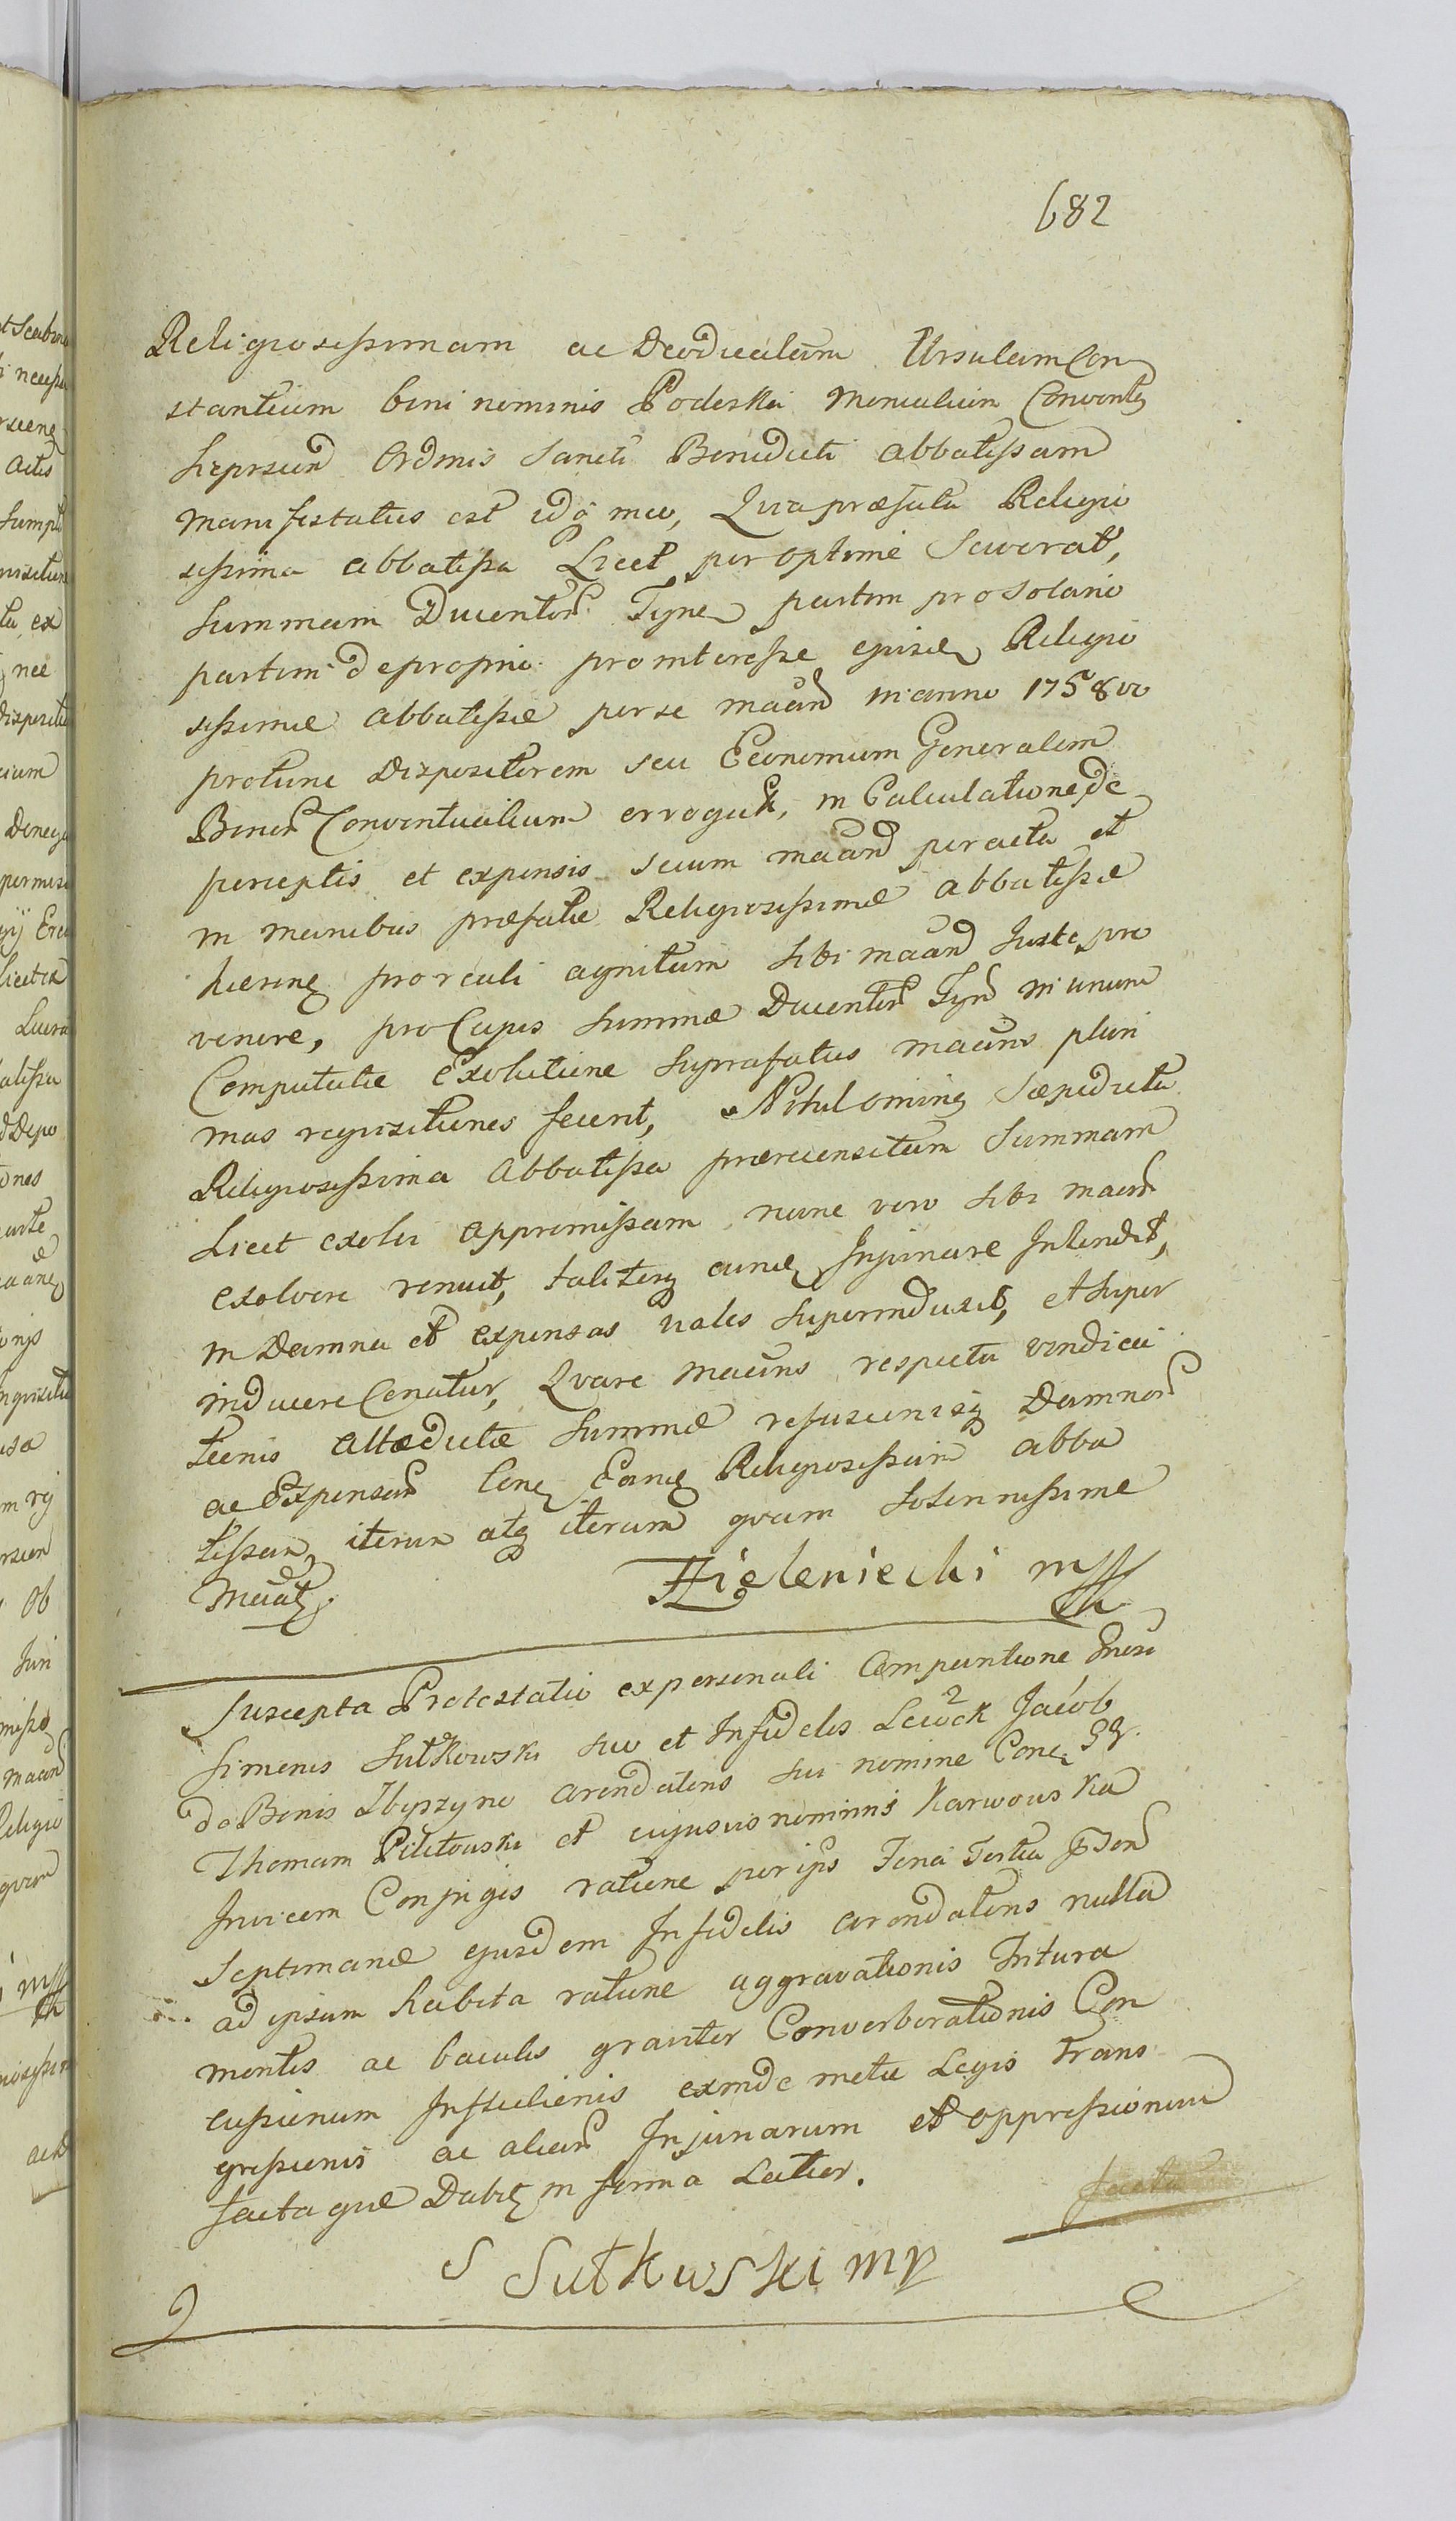 682
Religiosissimam ac Deodicatam Ursulam Con
stantiam bini nominis Poderska Monialium Conventus
Ordinis Sancti Benedicti Abbatissam
Manifestatus est idq in eo, Quia præfata Religio
sissima Abbatissa Licet per optime Sciverat,
Summam Ducentor Tynf partim pro Solario
partim de proprio pro interesse ejusdem Religio
sissimæ Abbatissæ per se maand in anno 1758vo
protunc Dispositorem seu Economum Generalem
Bonor Conventualium erogat, in Calculatione de
perceptis et expensis secum maand peracta et
in manibus præfatæ Religiosissimæ Abbatissæ
pro reali agnitam sibi maand Juste pro
venire, pro Cujus Summæ Ducentor Tynf in unum
Computatæ Exolutione Suprafatus maans pluri
mas requisitiones fecerit, Nihilominus Sæpedicta
Religiosissima Abbatissa prærecensitam Summam
Licet exolvi appromissam nunc vero sibi maan
exolvere renuit, taliterq eund Injuriare Intendit,
in Damna et expensas vales superinduxit, et super
inducere Conatur, Quare maans respectu vindica
tionis Attædictæ Summæ refusionisq Damnor
ac Expensar Con Eand Religiosissimam Abba
tissam, iterum atq iterum quam Solennissime
Meatr
Zieleniecki mpp
Suscepta Protestatio ex personali Comparitione Gnosi
Simonis Sutkowski suo et Infidelis Lewek Jacob
de Bonis Zbyszyno arendatoris sui nomine Con GG
Thomam Pilitowski et cujusvis nominis Karwowska
Invicem Conjuges ratione per ipsos Feria Tertia ptæn
Septimanæ ejusdem Infidelis arendatoris nulla
ad ipsum habita ratione aggravationis Intura
mentis ac baculis graviter Converberationis Con
cussionum exinde metu Legis Trans
gressionis ac aliar Injuriarum et oppressionum
facta
facta quæ Dabitur in forma Latior.
S Sutkowski mp